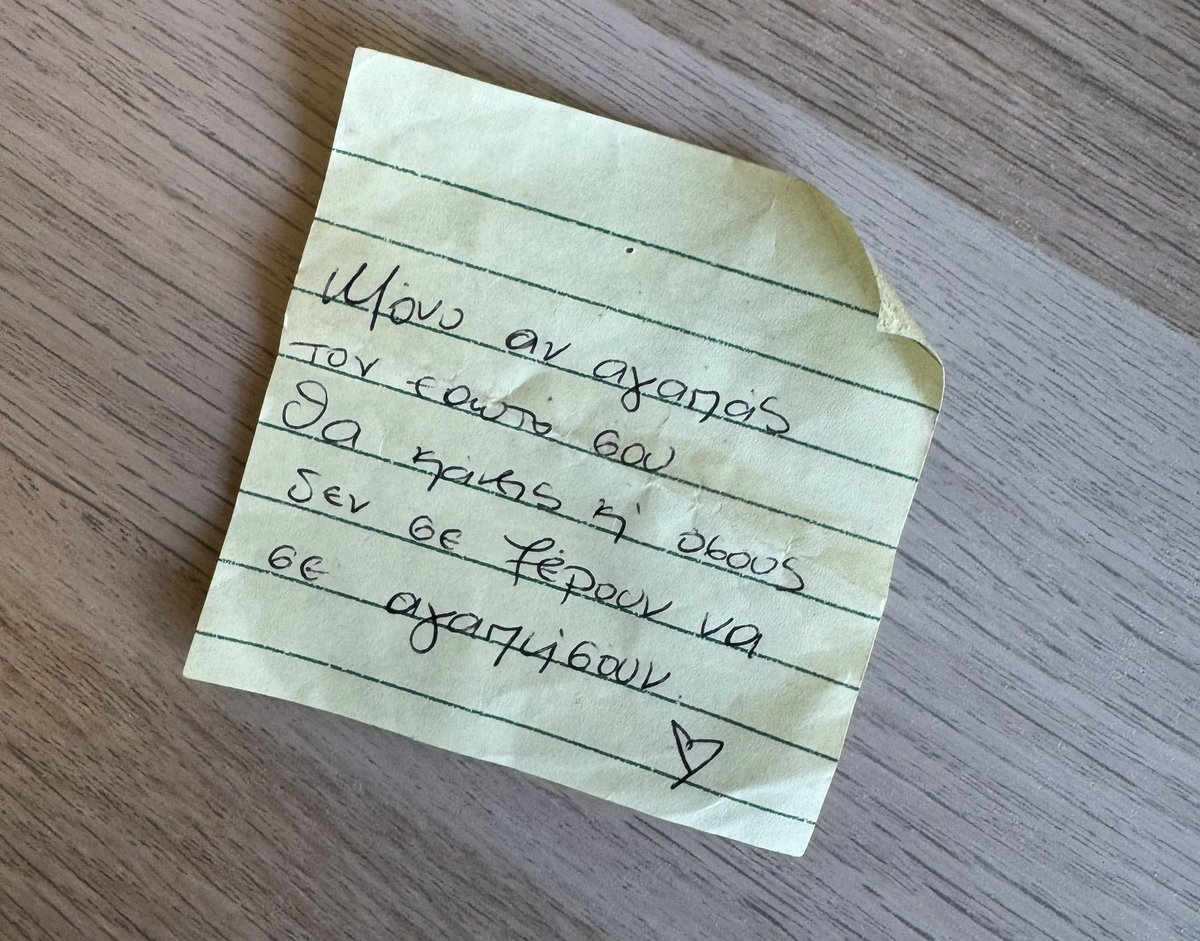 Μόνο αν αγαπάς
τον εαυτό σου
θα κανεις κι όσους
δεν σε ξέρουν να
σε αγαπήσουν.